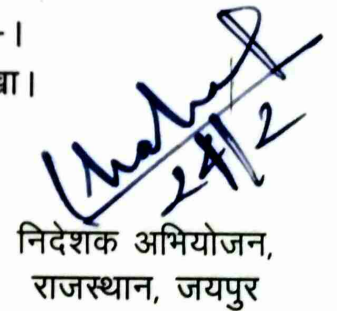 -।
ा।
24/2
निदेशक अभियोजन,
राजस्थान, जयपुर